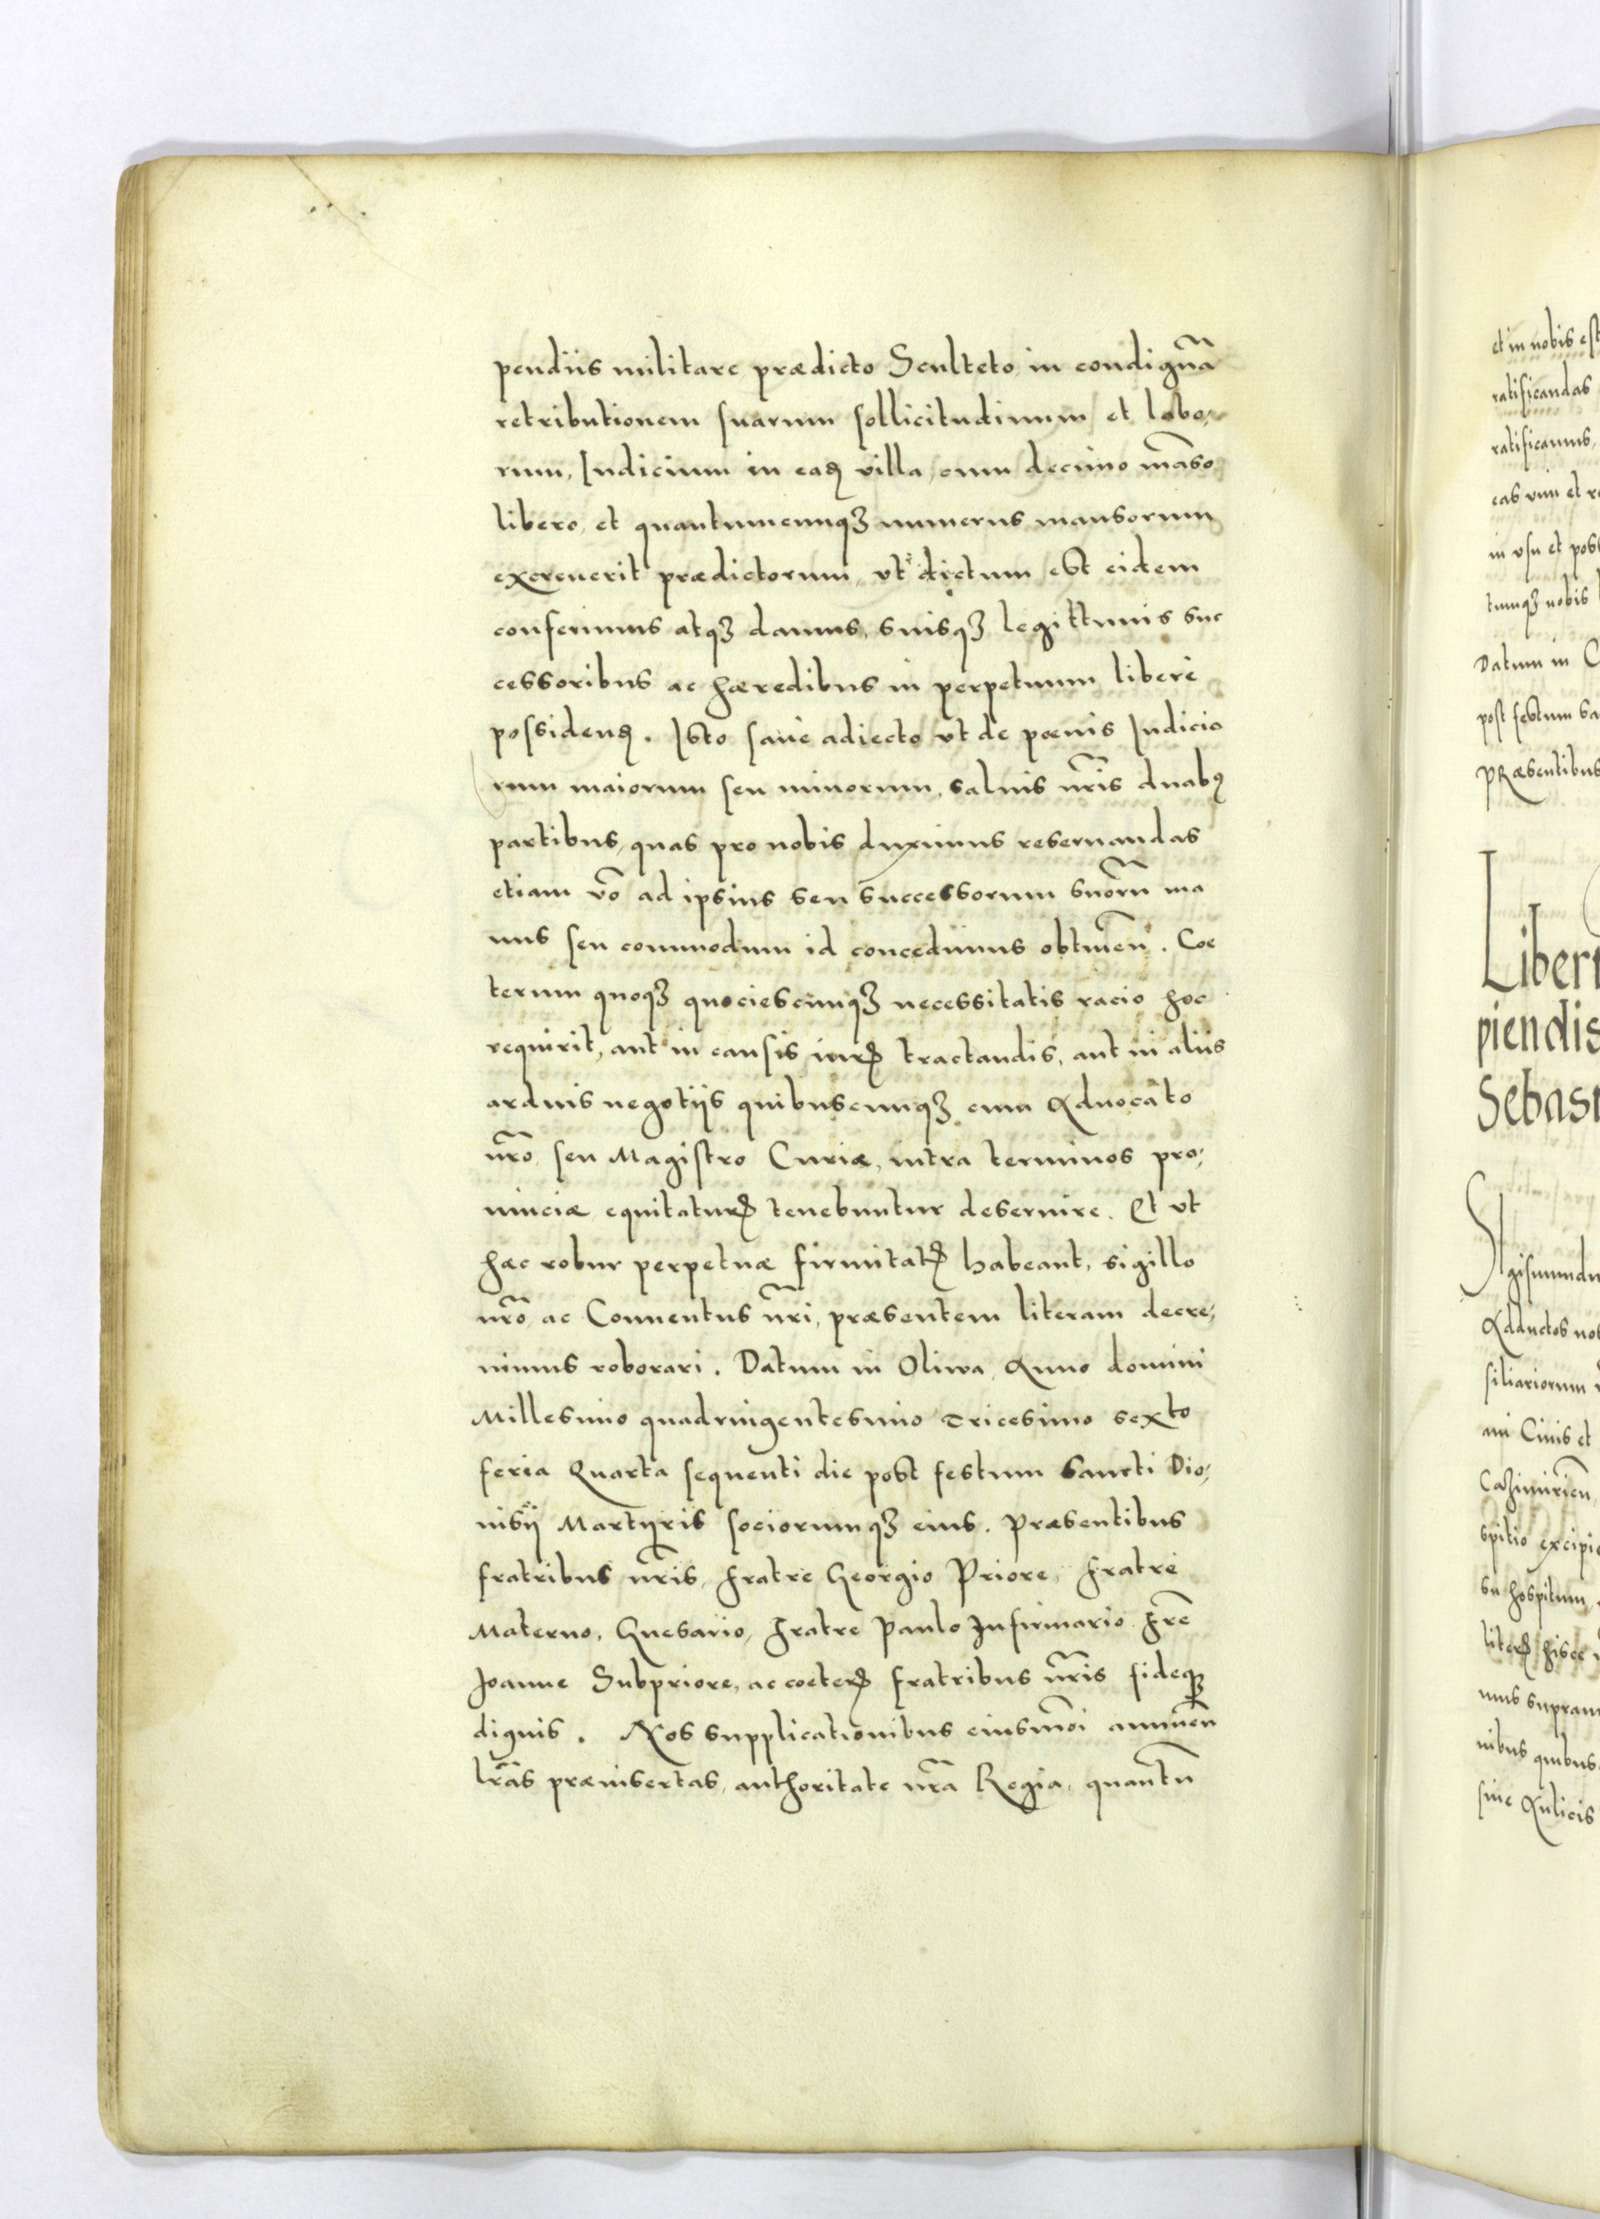 pendiis militare prædicto Sculteto in condignã
retributionem suarum sollicitudinum et labo⸗
rum, Iudicium in eaꝫ villa, cum decimo mãso
libero, et quantumcunqꝫ numerus mansorum
excreuerit prædictorum, vt dictum est eidem
conferimus atqꝫ damus, suisqꝫ legittimis suc
cessoribus ac hæredibus in perpetuum liberè
possidenꝫ. Isto sanè adiecto vt de pœnis Iudicio
rum maiorum seu minorum, saluis nr̃is duabꝰ
partibus, quas pro nobis duximus reseruandas
etiam võ ad ipsius seu successorum suor̃u ma
nus seu commodum id concedimus obtineñ. Cœ
terum quoqꝫ quociescunqꝫ necessitatis racio hoc
requirit, aut in causis iurꝭ tractandis, aut in aliis
arduis negotijs quibuscunqꝫ cum Aduocato
nr̃o, seu Magistro Curiæ, intra terminos pro⸗
uinciæ equitaturꝭ tenebuntur deseruire. Et vt
hæc robur perpetuæ firmitatꝭ habeant, sigillo
nr̃o ac Conuentus nr̃i, præsentem literam decre⸗
uimus roborari. Datum in Oliwa, Anno domini
Millesimo quadringentesimo Tricesimo sexto
feria Quarta sequenti die post festum Sancti Dio⸗
nisÿ Martÿris sociorumqꝫ eius. Præsentibus
fratribus nr̃is, Fratre Georgio Priore, Fratre
Materno, Guesario, Fratre Paulo Infirmario Frẽ
Joanne Subpriore, ac cœterꝭ fratribus nr̃is fideqꝫ
dignis. Nos supplicationibus eiusmõi annueñ
lr̃as præinsertas, authoritate nr̃a Regia, quantũ
et in nobis est
ratificandas
ratificamus,
eas vim et r
in vsu et pos
tumqꝫ nobis
Datum in C
post festum Sa
PRæsentibus
Libert
piendis
Sebast
SIgismundu
Adductos nob
siliariorum
ani Ciuis et
Cazimirieñ
spitio excipi
su hospitum,
literꝭ hisce
mus supram
nibus quibus
siue Aulicis